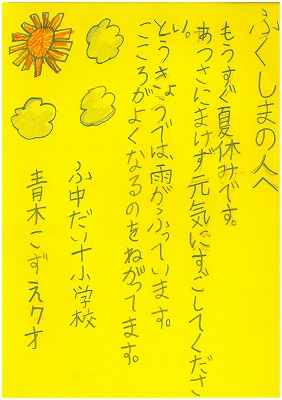 ふくしまの人へ
もうすぐ夏休みです。
あつさにまけず元気にすごしてくださ
い。
とうきょうでは、雨がふっています。
こころがよくなるのをねがってます。
ふ中だい十小学校
青木こずえ9才